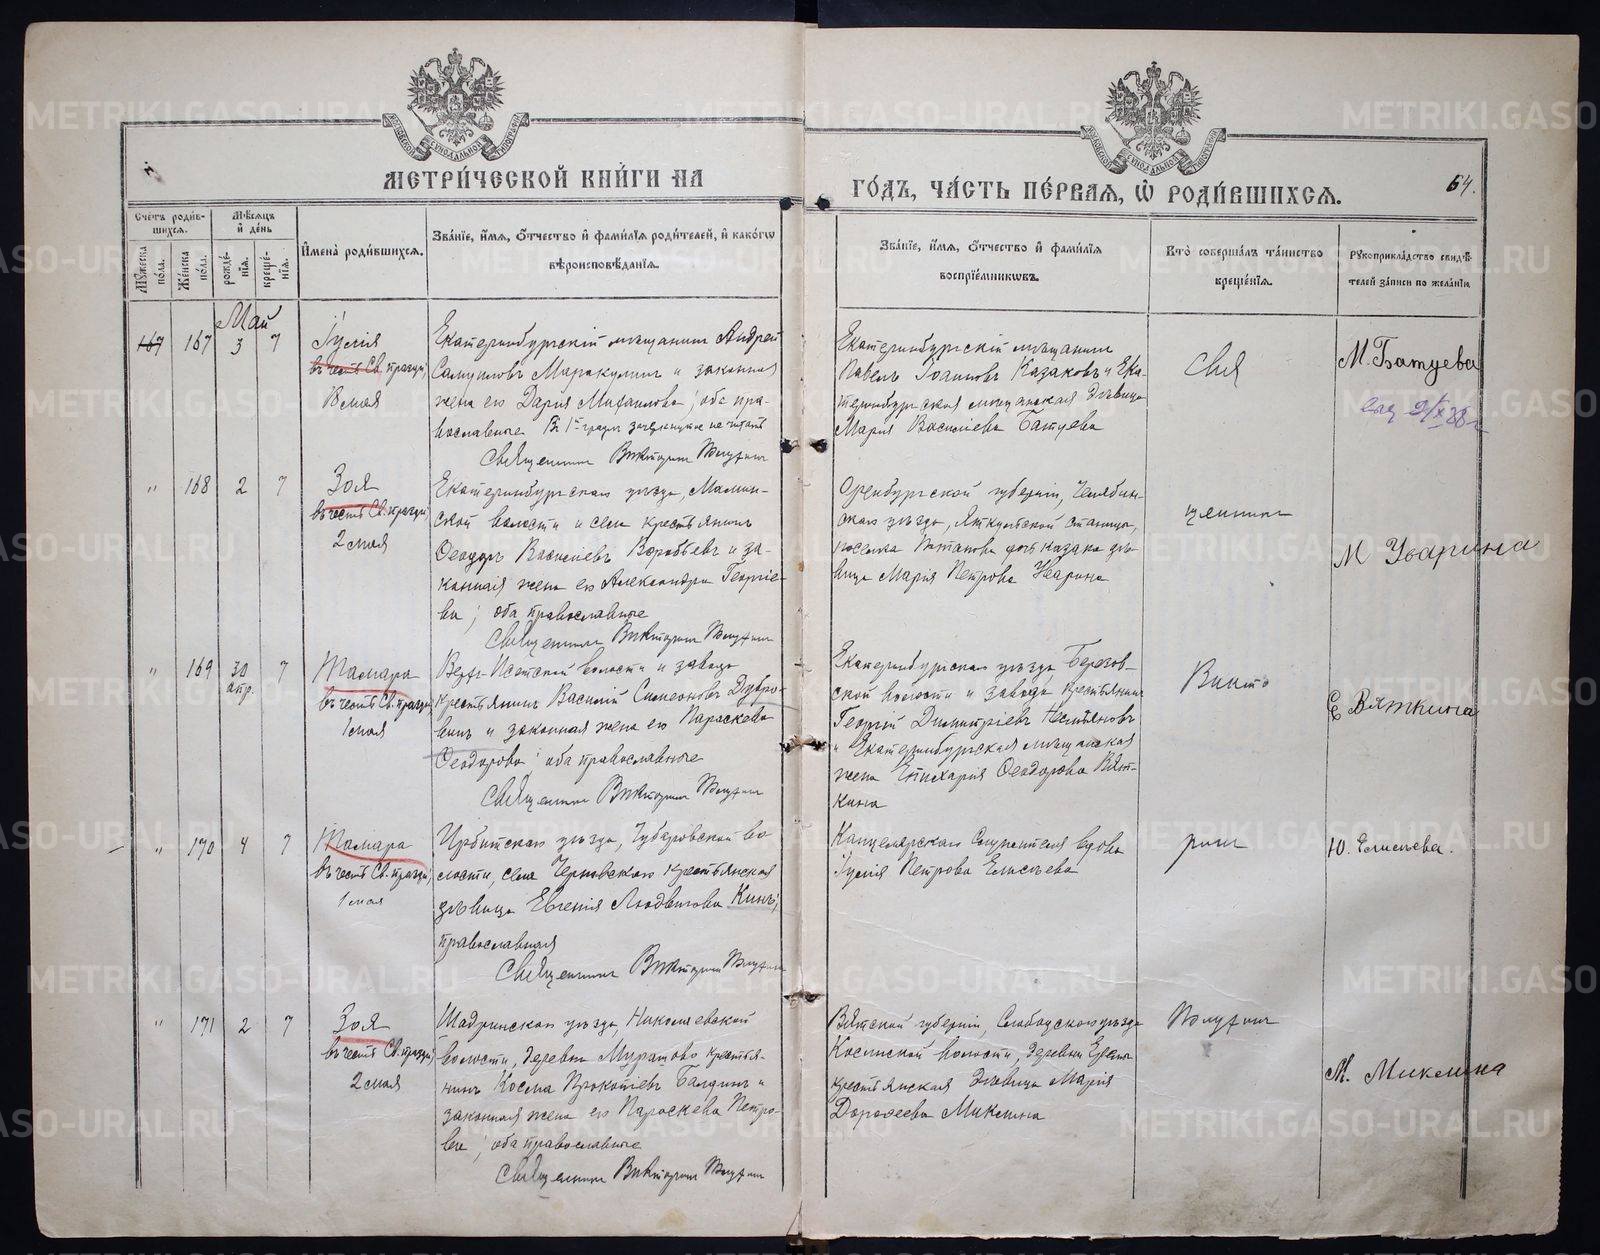 МЕТРИ́ЧЕСКОЙ КНИ́ГИ НА
ГО́ДЪ, ЧА́СТЬ ПЕ́РВАЯ, Ѡ РОДИ́ВШИХСЯ.
64.
Сче́тъ роди́в-
шихся.
Му́жеска по́ла.
Же́нска по́ла.
Мѣ́сяцъ и де́нь
рожде́нія.
креще́нія.
Имена́ роди́вшихся.
Зва́ніе, и́мя, о́тчество и фами́лія роди́телей, и како́гѡ
вѣроисповѣ́данія.
Зва́ніе, и́мя, о́тчество и фами́лія
воспріе́мниковъ.
Кто̀ соверша́лъ та́инство
креще́нія.
Рукоприкла́дство свидѣ́-
телей за́писи по жела́нію
Май
167 167 3 7
Іулія
въ честь Св. празд.
18 мая
Екатеринбургскій мѣщанинъ Андрей
Самуиловъ Маракулинъ и законная
жена его Дарія Михаилова; оба пра-
вославные. В 1й графѣ зачеркнутое не читать
Священникъ Викторъ
Екатеринбургскій мѣщанинъ
Павелъ Іоанновъ Казаковъ и Ека-
теринбургская мѣщанская дѣвица
Марія Васильева Батуева
Свя
М. Батуева
" 168 2 7
Зоя
въ честь Св. празд.
2 мая
Екатеринбургскаго уѣзда, Мамин-
ской волости и села крестьянинъ
Ѳеодоръ Васильевъ Воробьевъ и за-
конная жена его Александра Георгіе-
ва; оба православные
Священникъ Викторъ
Оренбургской губерніи, Челябин-
скаго уѣзда, станицы,
поселка дочь казака дѣ-
вица Марія Петрова Уварина
щенникъ
М Уварина
" 169 30 апр. 7
Тамара
въ честь Св. празд.
1 мая
Верхъ-Исетской волости и завода
крестьянинъ Василій Симеоновъ Дубро-
винъ и законная жена его Параскева
Ѳеодорова; оба православные
Священникъ Викторъ
Екатеринбургскаго уѣзда Березов-
ской волости и завода крестьянинъ
Георгій Димитріевъ
и Екатеринбургская мѣщанская
жена Епихарія Ѳеодорова Вят-
кина
Викто
Е Вяткина
" 170 4 7
Тамара
въ честь Св. празд.
1 мая
Ирбитскаго уѣзда, во-
лости, села Черновскаго крестьянская
дѣвица Евгенія Людвигова Кинъ,
православная
Священникъ Викторъ
Канцелярскаго служителя вдова
Іулія Петрова Елисѣева
ръ
Ю. Елисѣева.
" 171 2 7
Зоя
въ честь Св. празд.
2 мая
Шадринскаго уѣзда, Николаевской
волости, деревни крестья-
нинъ Косма Прокопіевъ Балдинъ и
законная жена его Параскева Петро-
ва; оба православные
Священникъ Викторъ
Вятской губерніи, Слободского уѣзда
волости, деревни
крестьянская дѣвица Марія
Дорофеева Миклина
М. Миклина